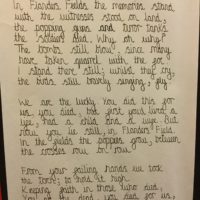 In Flanders Fields the memories stand
with the witnesses stood on land,
the popping guns and tanks
the soldiers cried. Why, oh why?
The bombs still blow, since many
have taken quarrel with the foe
I stand there still; whilst they cry,
the birds still bravely singing, fly

We are the lucky. You did this for
us you died, but first you'd lived a
life, had a child and a wife. But
now you lie still, in Flanders Field.
In the fields the poppies grow, between
the crosses row on row

From your failing hands we took
the torch; to hold it high.
Keeping faith in those who died,
you died for us,